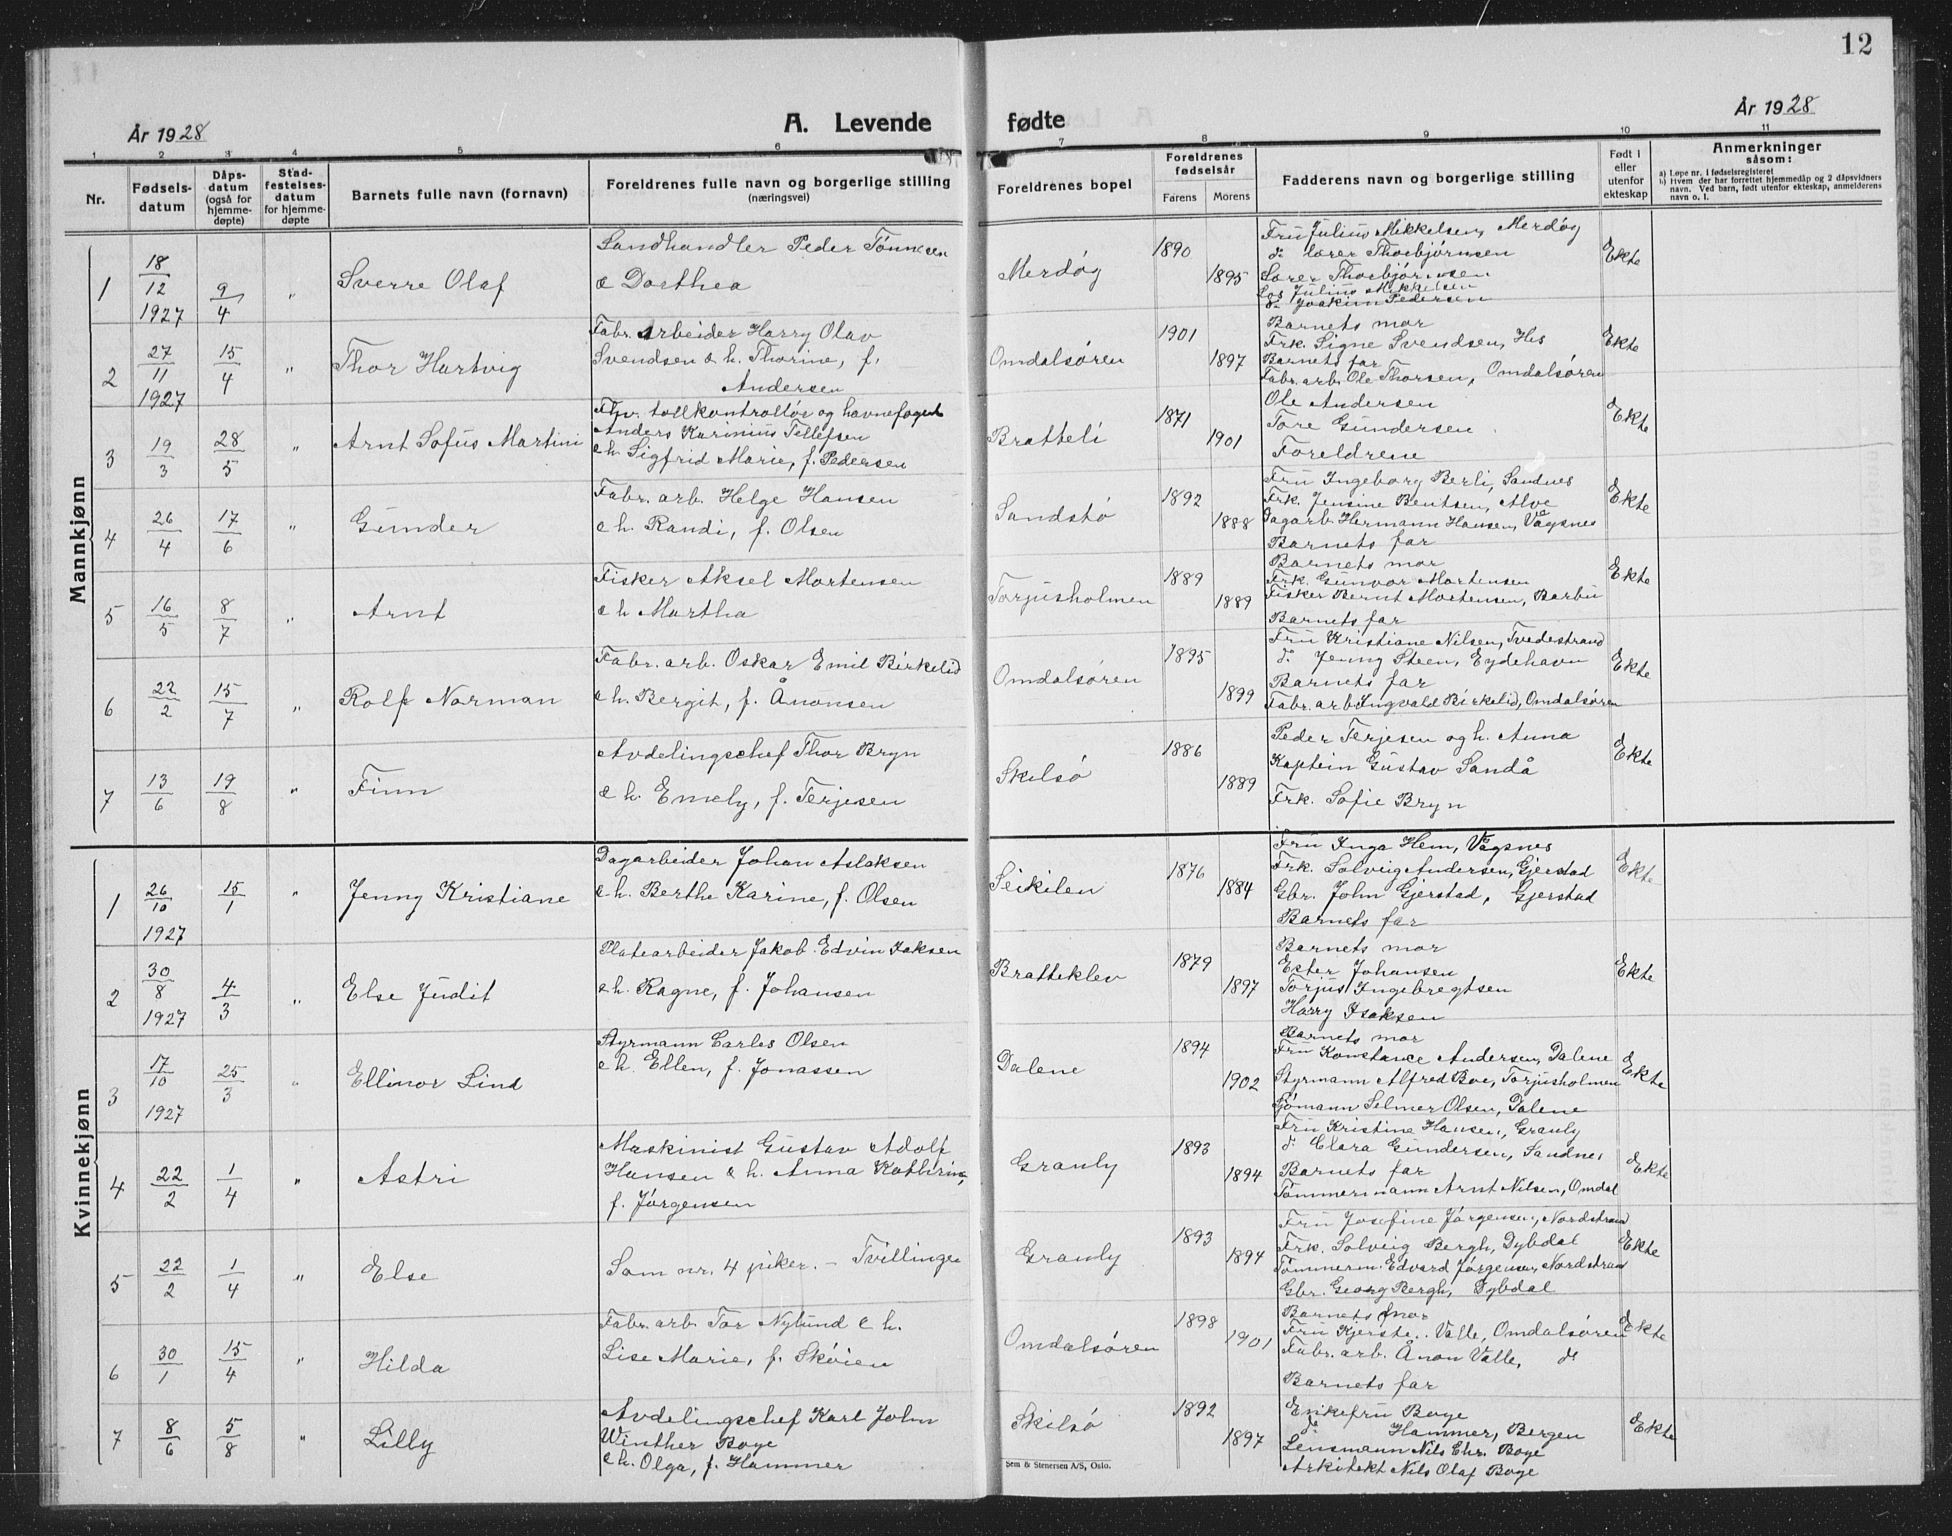 12
År 1928
A. Levende fødte
År 1928
1 2 3 4 5 6 7 8 9 10 11
Nr.
Fødsels-
datum
Dåps-
datum
(også for
hjemme-
døpte)
Stad-
festelses-
datum
for hjemme-
døpte
Barnets fulle navn (fornavn)
Foreldrenes fulle navn og borgerlige stilling
(næringsvei)
Foreldrenes bopel
Foreldrenes
fødselsår
Farens Morens
Fadderens navn og borgerlige stilling
Født i
eller
utenfor
ekteskap
Anmerkninger
såsom:
a) Løpe nr. i fødselsregisteret
b) Hvem der har forrettet hjemmedåp og 2 dåpsvidners
navn. Ved barn, født utenfor ekteskap, anmelderens
navn o. l.
Mannkjønn
1 18/12 1927 9/4 " Sverre Olaf
Landhandler Peder Tønnesen
& Dorthea
Merdøg 1890 1895
Fru Julius Mikkelsen, Merdøg
d: Lærer Thorbjørnsen
Lærer Thorbjørnsen
Los Julius Mikkelsen
d: Joakim Pedersen
Ekte
2 27/11 1927 15/4 " Thor Hartvig
Fabr. arbeider Harry Olav
Svendsen & h. Thorine, f.
Andersen
Omdalsøren 1901 1897
Barnets mor
Frk. Signe Svendsen, His
Barnets far
Fabr. arb. Ole Thorsen, Omdalsøren
Ekte
3 19/3 28/5 " Arnt Sofus Martini
Fhv. tollkontrollør og havnefoged
Anders Karinius Tellefsen
& h. Sigfrid Marie, f. Pedersen
Bratteli 1871 1901
Ole Andersen
Tore Gundersen
Foreldrene
Ekte
4 26/4 17/6 " Gunder
Fabr. arb. Helge Hansen
& h. Randi, f. Olsen
Sandstø 1892 1888
Fru Ingeborg Berli, Sandnes
Frk. Jensine Bentsen, Alve
Dagarb. Hermann Hansen, Vågsnes
Barnets far
Ekte
5 16/5 8/7 " Arnt
Fisker Aksel Mortensen
& h. Martha
Torjusholmen 1889 1889
Barnets mor
Frk. Gunvor Mortensen
Fisker Bernt Mortensen, Barbu
Barnets far
Ekte
6 22/2 15/7 " Rolf Norman
Fabr. arb. Oskar Emil Birkelid
& h. Bergit, f. Ånonsen
Omdalsøren 1895 1899
Fru Kristiane Nilsen, Tvedestrand
d: Jenny Steen, Eydehavn
Barnets far
Fabr. arb. Ingvald Birkelid, Omdalsøren
Ekte
7 13/6 19/8 " Finn
Avdelingschef Thor Bryn
& h. Emely, f. Terjesen
Skilsø 1886 1889
Peder Terjesen og h. Anna
Kaptein Gustav Sandå
Frk. Sofie Bryn
Ekte
Kvinnekjønn
1 26/10 1927 15/1 " Jenny Kristiane
Dagarbeider Johan Aslaksen
& h. Berthe Karine, f. Olsen
Seikilen 1876 1884
Fru Inga Hem, Vågsnes
Frk. Solveig Andersen, Gjerstad
Gbr. John Gjerstad, Gjerstad
Barnets far
Ekte
2 30/8 1927 4/3 " Else Judit
Platearbeider Jakob Edvin Isaksen
& h. Ragne, f. Johansen
Bratteklev 1879 1897
Barnets mor
Ester Johansen
Torjus Ingebregtsen
Harry Isaksen
Ekte
3 17/10 1927 25/3 " Ellinor Lind
Styrmann Carles Olsen
& h. Ellen, f. Jonassen
Dalene 1894 1902
Barnets mor
Fru Konstance Andersen, Dalene
Styrmann Alfred Boe, Torjusholmen
Sjømann Selmer Olsen, Dalene
Ekte
4 22/2 1/4 " Astri
Maskinist Gustav Adolf
Hansen & h. Anna Kathrine,
f. Jørgensen
Granly 1893 1894
Fru Kristine Hansen, Granly
d: Clara Gundersen, Sandnes
Barnets far
Tømmermann Arnt Nilsen, Omdal
Ekte
5 22/2 1/4 " Else
Som nr. 4 piker. - Tvillinger
Granly 1893 1894
Fru Josefine Jørgensen, Nordstrand
Frk. Solveig Bergh, Dybdal
Tømmerm. Edvard Jørgensen, Nordstrand
Gbr. Georg Bergh, Dybdal
Ekte
6 30/1 15/4 " Hilda
Fabr. arb. Tor Nylund & h.
Lise Marie, f. Skøien
Omdalsøren 1898 1901
Barnets mor
Fru Kjerste.. Valle, Omdalsøren
Fabr. arb. Ånon Valle, d:
Barnets far
Ekte
7 8/6 5/8 " Lilly
Avdelingschef Karl John
Winther Boye
& h. Olga, f. Hammer
Skilsø 1892 1897
Enkefru Boye
d: Hammer, Bergen
Lensmann Nils Chr. Boye
Arkitekt Nils Olaf Boye
Ekte
Sem & Stenersen A/S, Oslo.